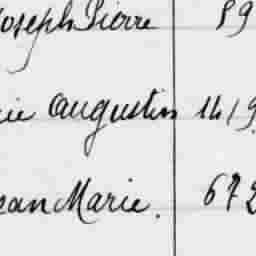 Joseph Pierre 89
rie Augustin 1419
ean Marie. 672